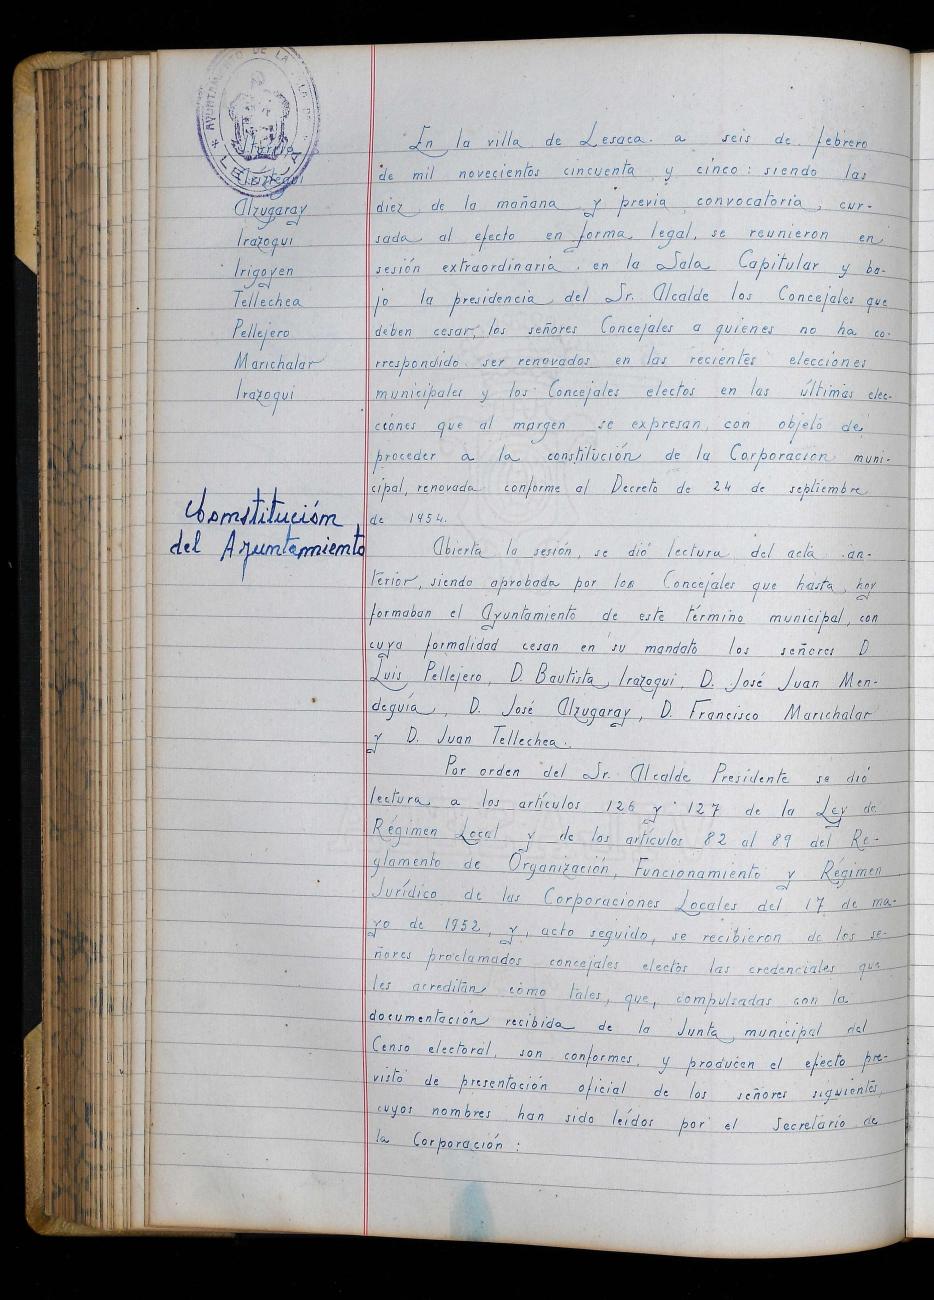 AYUNTAMIENTO DE LA VILLA DE
LESACA
Alzugaray
Irazoqui
Irigoyen
Tellechea
Pellejero
Marichalar
Irazoqui
Constitución
del Ayuntamiento
En la villa de Lesaca. a seis de febrero
de mil novecientos cincuenta y cinco: siendo las
diez de la mañana y previa convocatoria, cur-
sada al efecto en forma legal, se reunieron en
sesión extraordinaria. en la Sala Capitular y ba-
jo la presidencia del Sr. Alcalde los Concejales que
deben cesar, los señores Concejales a quienes no ha co-
rrespondido ser renovados en las recientes elecciones
municipales y los Concejales electos en las últimas elec-
ciones que al margen se expresan, con objeto de
proceder a la constitución de la Corporación muni-
cipal, renovada conforme al Decreto de 24 de septiembre
de 1954.
Abierta la sesión, se dió lectura del acta an-
terior, siendo aprobada por los Concejales que hasta hoy
formaban el Ayuntamiento de este término municipal, con
cuya formalidad cesan en su mandato los señores D
Luis Pellejero, D. Bautista Irazoqui, D. José Juan Men-
deguía, D. José Alzugaray, D. Francisco Marichalar
y D. Juan Tellechea.
Por orden del Sr. Alcalde Presidente se dió
lectura a los artículos 126 y 127 de la Ley de
Régimen Local y de los artículos 82 al 89 del Re-
glamento de Organización, Funcionamiento y Régimen
Jurídico de las Corporaciones Locales del 17 de ma-
yo de 1952, y, acto seguido, se recibieron de los se-
ñores proclamados concejales electos las credenciales que
les acreditan como tales, que, compulsadas con la
documentación recibida de la Junta municipal del
Censo electoral, son conformes, y producen el efecto pre-
visto de presentación oficial de los señores siguientes,
cuyos nombres han sido leídos por el Secretario de
la Corporación: